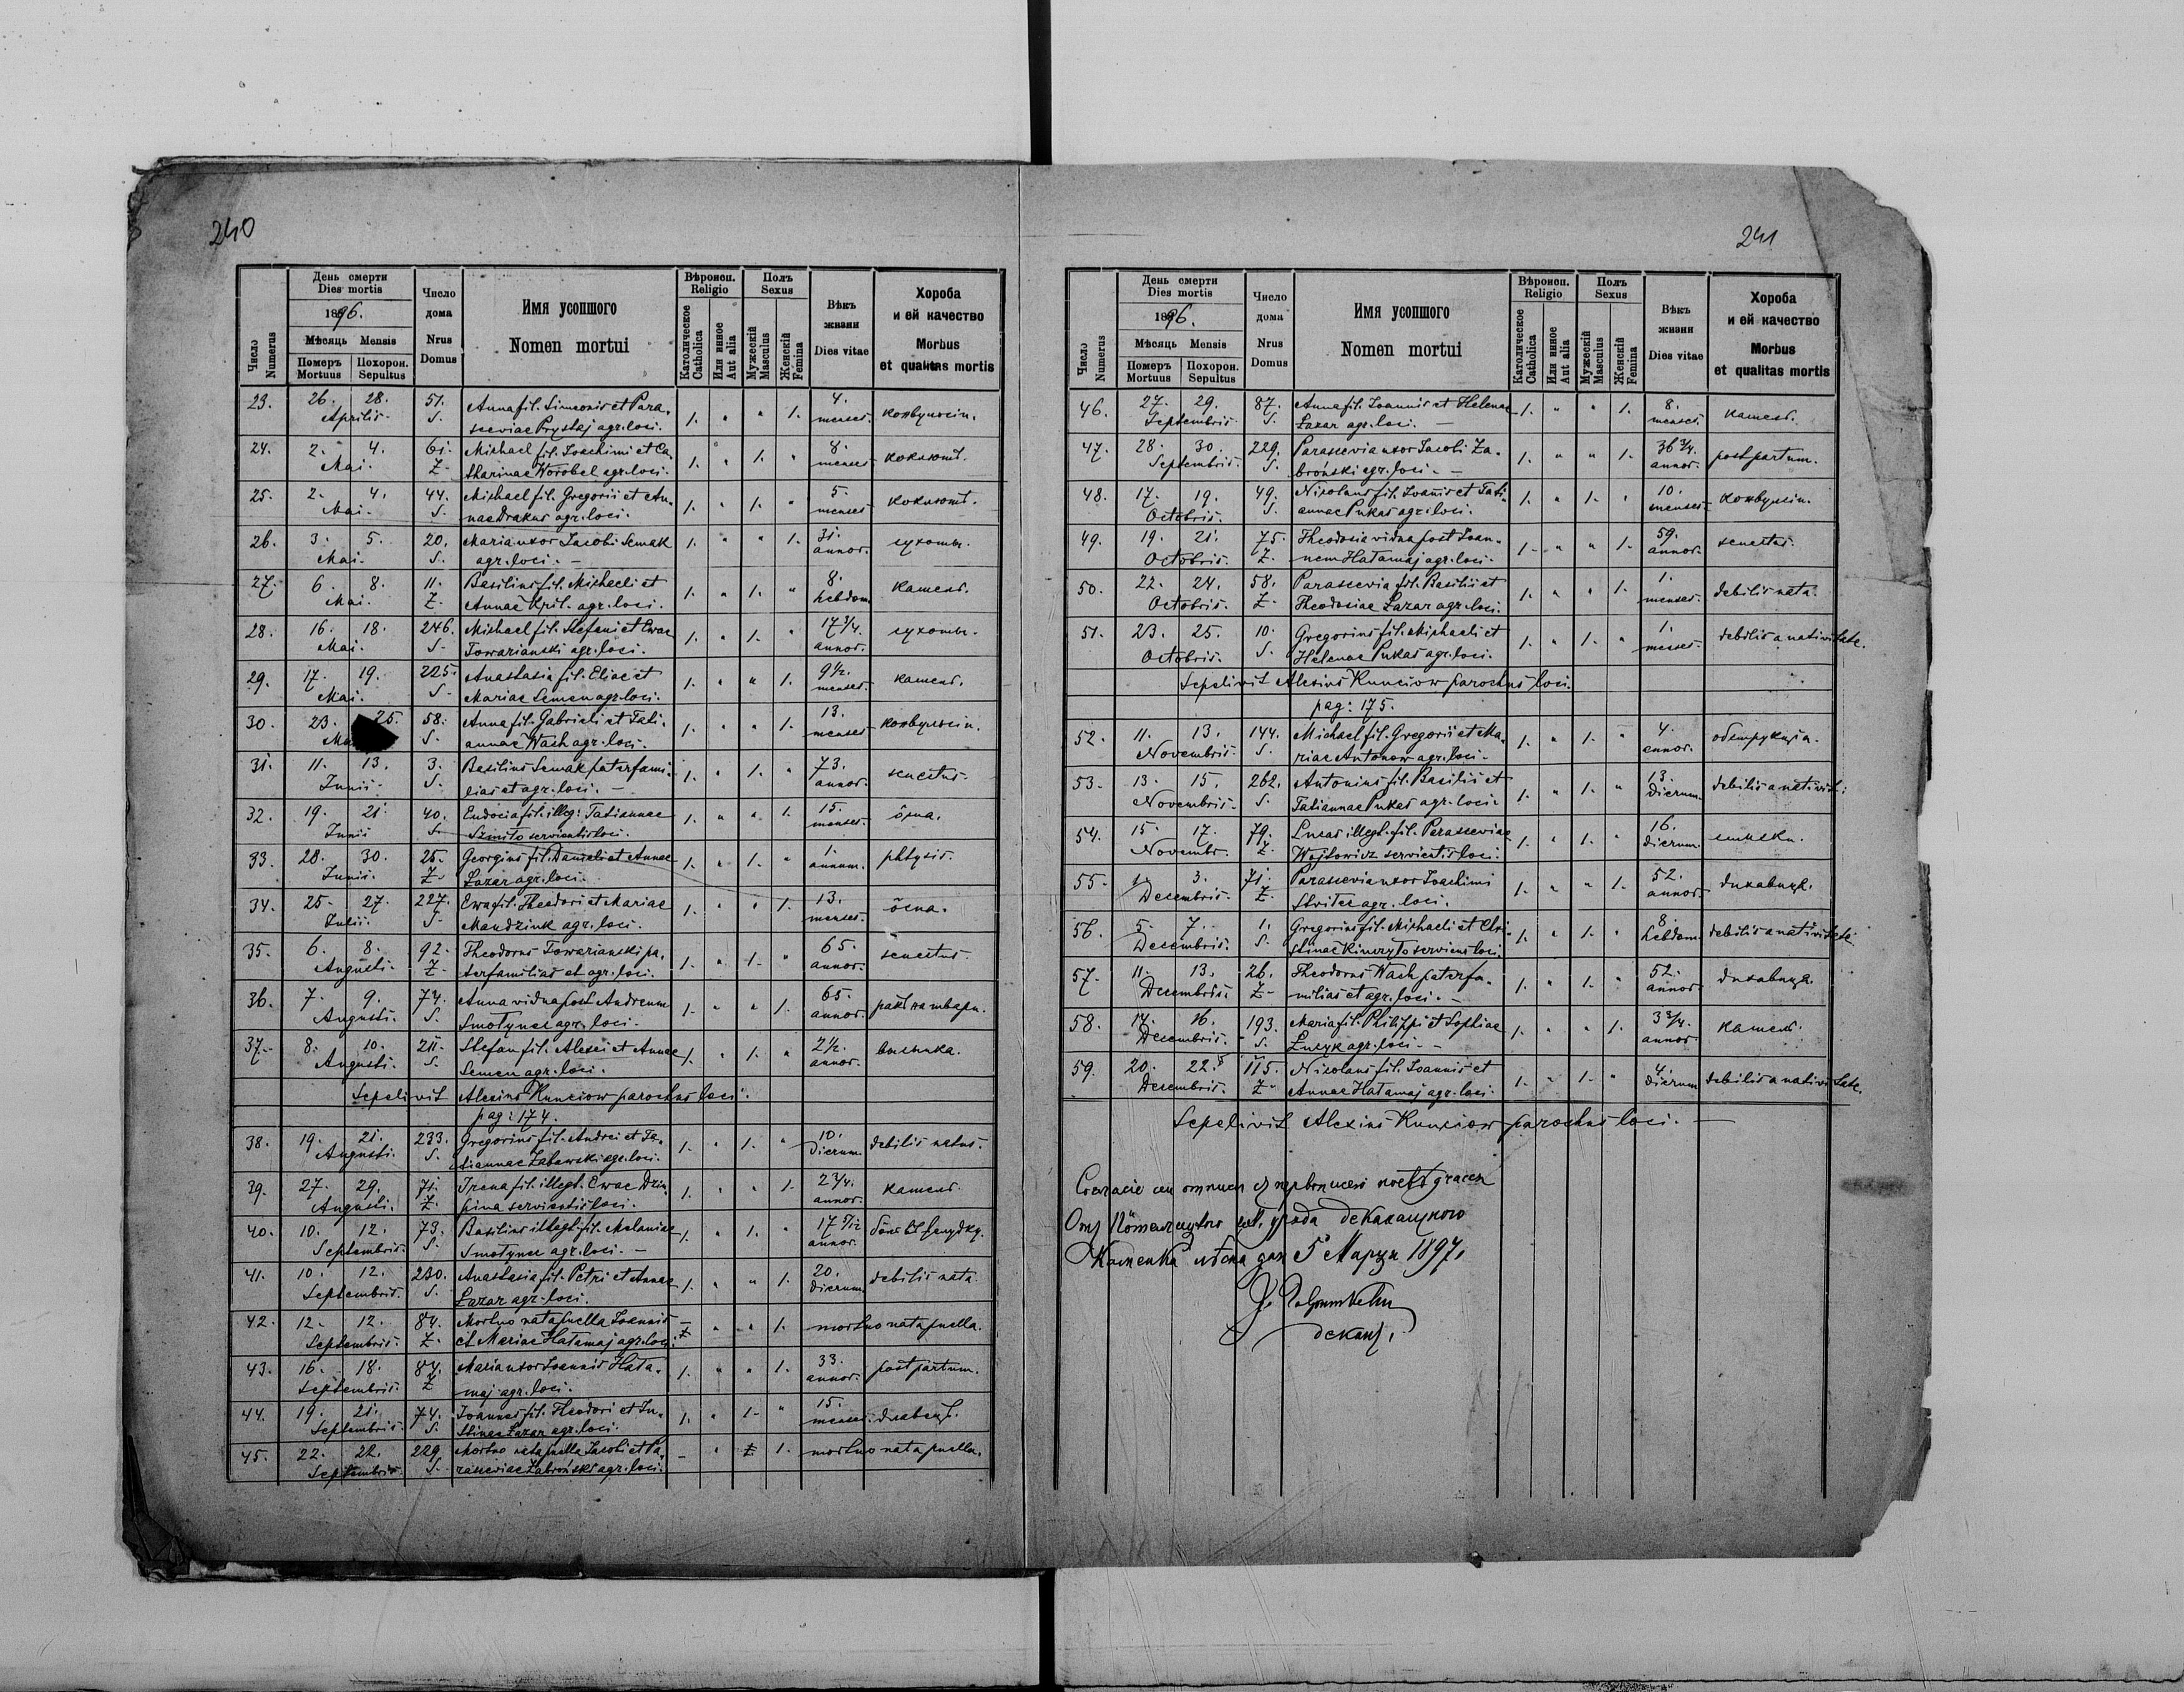 240
День смерти
Dies mortis
1896.
Мѣсяць Mensis
Померъ Похорон.
Mortuus Sepultus
Число
Numerus
Число
дома
Nrus
Domus
Имя усопшого
Nomen mortui
Вѣроисп.
Religio
Католическое
Catholica
Или инное
Aut alia
Полъ
Sexus
Мужескій
Masculus
Женскій
Femina
Вѣкъ
жизни
Dies vitae
Хороба
и ей качество
Morbus
et qualitas mortis
23. 26. 28. 51. Anna fil. Simeonis et Para- 1. " " 1. 4. конвульсіи.
Aprilis. S. sceviae Prystaj agr. loci. menses.
24. 2. 4. 61. Michael fil. Joachimi et Ca- 1. " 1. " 8. коклюшъ.
Mai. Z. tharinae Worobel agr. loci. menses
25. 2. 4. 44. Michael fil. Gregorii et An- 1. " 1. " 5. коклюшъ.
Mai. S. nae Drakus agr. loci. menses
26. 3. 5. 20. Maria uxor Jacobi Semak 1. " " 1. 31. сухоты.
Mai. S. agr. loci. — annor.
27. 6. 8. 11. Basilius fil. Michaeli et 1. " 1. " 8. камень.
Mai. Z. Annae Kril. agr. loci. hebdom.
28. 16. 18. 246. Michael fil. Stefani et Ewae 1. " 1. " 17 3/4. сухоты.
Mai. S. Towarianski agr. loci. annor.
29. 17. 19. 225. Anastasia fil. Eliae et 1. " " 1. 9 1/2. камень.
Mai. S. Mariae Semen agr. loci. menses.
30. 23. 25. 58. Anna fil. Gabrieli et Tati- 1. " " 1. 13. конвульсіи.
S. annae Wach agr. loci. menses
31. 11. 13. 3. Basilius Semak paterfami- 1. " 1. " 73. senectus.
Junii. S. lias et agr. loci. — annor.
32. 19. 21. 40. Eudocia fil. illeg: Tatiannae 1. " " 1. 15. ôspa.
Junii S. servientis loci. menses.
33. 28. 30. 25. Georgius fil. Danieli et Annae 1. " 1. " 1. phtysis.
Junii. Z. Łazar agr. loci. annum.
34. 25. 27. 227. Ewa fil. Theodori et Mariae 1. " " 1. 13. ôспа.
Julii. S. Mandziuk agr. loci. menses.
35. 6. 8. 92. Theodorus Towarianski pa- 1. " 1. " 65. senectus.
Augusti. Z. terfamilias et agr. loci. annor.
36. 7. 9. 74. Anna vidua post Andream 1. " " 1. 65. ракъ на твари.
Augusti. S. Smotynec agr. loci. annor.
37. 8. 10. 211. Stefan fil. Alexii et Annae 1. " 1. " 2 1/2.
Augusti. S. Semen agr. loci. annor.
Sepelivit Alexius Kunciow parochus loci.
pag: 174.
38. 19. 21. 233. Gregorius fil. Andrei et Ta- 1. " 1. " 10. debilis natus.
Augusti. S. tiannae Zabawski agr. loci. Dierum
39. 27. 29. 71. Irena fil. illegt. Ewae 1. " " 1. 2 3/4. камень.
Augusti. Z. servientis loci. annor.
40. 10. 12. 73. Basilius illegt. fil. Melaniae 1. " 1. " 17 5/12
Septembris. S. Smotynec agr. loci. — annor.
41. 10. 12. 230. Anastasia fil. Petri et Annae 1. " " 1. 20. debilis nata.
Septembris. S. Łazar agr. loci. Dierum
42. 12. 12. 84. Mortuo nata puella Joannis " " 1. mortuo nata puella.
Septembris. Z. et Mariae Hatamaj agr. loci.
43. 16. 18. 84. Maria uxor Joannis Hata- 1. " " 1. 33. post partum.
Septembris. Z maj agr. loci. annor.
44. 19. 21. 74. Joannes fil. Theodori et Ju- 1. " 1. " 15.
Septembris S. stinae Łazar agr. loci. menses.
45. 22. 22. 229 Mortuo nata puella Jacobi et Pa- " 1. mortuo nata puella.
Septembris S. rasceviae Zabroński agr. loci.
241
День смерти
Dies mortis
1896.
Мѣсяць Mensis
Померъ Похорон.
Mortuus Sepultus
Число
Numerus
Число
дома
Nrus
Domus
Имя усопшого
Nomen mortui
Вѣроисп.
Religio
Католическое
Catholica
Или инное
Aut alia
Полъ
Sexus
Мужескій
Masculus
Женскій
Femina
Вѣкъ
жизни
Dies vitae
Хороба
и ей качество
Morbus
et qualitas mortis
46. 27. 29. 87. Anna fil. Joannis et Helenae 1. " " 1. 8. камень.
Septembris S. Łazar agr. loci. — menses.
47. 28. 30. 229. Parascevia uxor Jacobi Za- 1. " " 1. 36 3/4. post partum.
Septembris. S. broński agr. loci. — annor.
48. 17. 19. 49. Nicolaus fil. Joannis et Tati- 1. " 1. " 10. конвульсіи.
Octobris. S. annae Pukas agr. loci. menses
49. 19. 21. 75. Theodosia vidua post Joan- 1. " " 1. 59. senectus.
Octobris. Z. nem Hatamaj agr. loci. annor.
50. 22. 24. 58. Parascevia fil. Basilii et 1. " " 1. 1. debilis nata.
Octobris. Z. Theodosiae Łazar agr. loci. menses.
51. 23. 25. 10. Gregorius fil. Michaeli et 1. " 1. " 1. debilis a nativitate.
Octobris. S. Helenae Pukas agr. loci. menses.
Sepelivit Alexius Kunciow parochus loci.
pag: 175.
52. 11. 13. 144. Michael fil. Gregorii et Ma- 1. " 1. " 4. обструкція.
Novembris. S. riae Antonow agr. loci. annor.
53. 13. 15. 262. Antonius fil. Basilii et 1. " 1. " 13. debilis a nativit:
Novembris. S. Tatiannae Pukas agr. loci. Dierum.
54. 15. 17. 79. Lucas illegt. fil. Parasceviae 1. " 1. " 16.
Novembr. Z. Wojtowicz servientis loci. Dierum
55. 1. 3. 71. Parascevia uxor Joachimi 1. " " 1. 52. дихавиця.
Decembris. Z. agr. loci. annor
56. 5. 7. 1. Gregorius fil. Michaeli et Chri- 1. " 1. " 8. debilis a nativitate.
Decembris. S. stinae serviens loci. hebdom.
57. 11. 13. 26. Theodorus Wach paterfa- 1. " 1. " 52. дихавиця.
Decembris. Z. milias et agr. loci. — annor.
58. 14. 16. 193. Maria fil. Philippi et Sophiae 1. " " 1. 3 3/4. камень.
Decembris. S. Łucyk agr. loci. — annor
59. 20. 22. 115. Nicolaus fil. Joannis et 1. " 1. " 4. debilis a nativitate.
Decembris. Z. Annae Hatamaj agr. loci. Dierum
Sepelivit Alexius Kunciow parochus loci. —
Согласіе сеи отписи съ
Отъ уряда деканального
Каменка дня 5 Марта 1897.
деканъ.